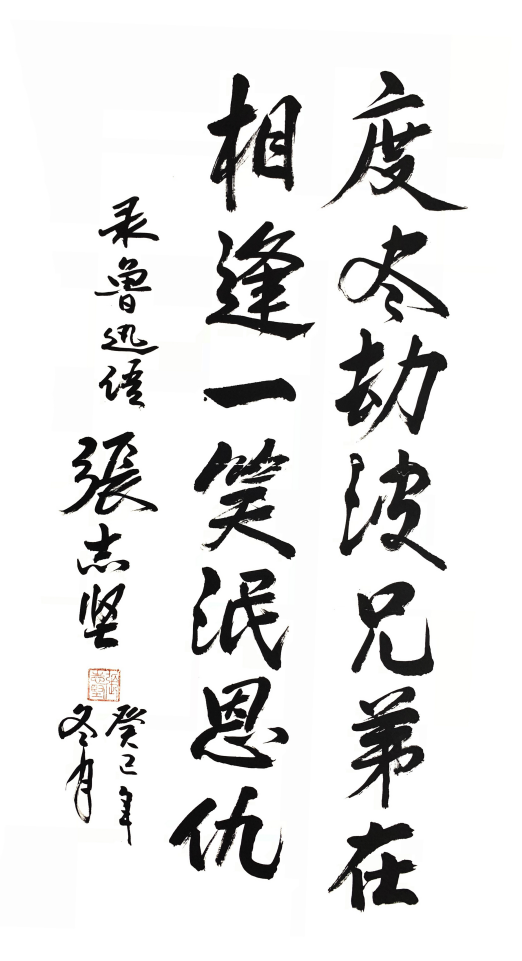 度尽劫波兄弟在
相逢一笑泯恩仇
录鲁迅语 張志坚
癸巳年
冬月